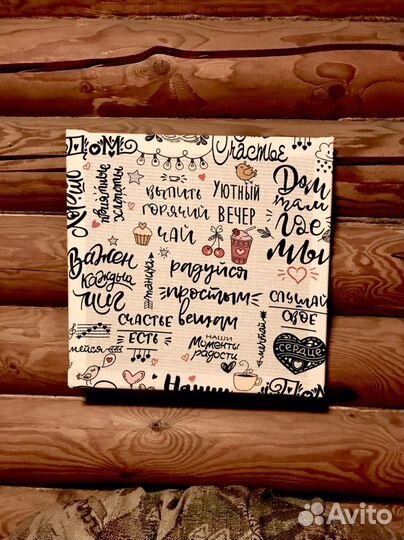 Счастье
приятные
хлопоты
выпить
горячий
чай
уютный
вечер
Дом
там
где
мы
Важен
каждый
миг
радуйся
простым
вещам
слушай
своё
сердце
счастье
есть
наши
моменты
радости
мечтай
мейся
Наши
Avito